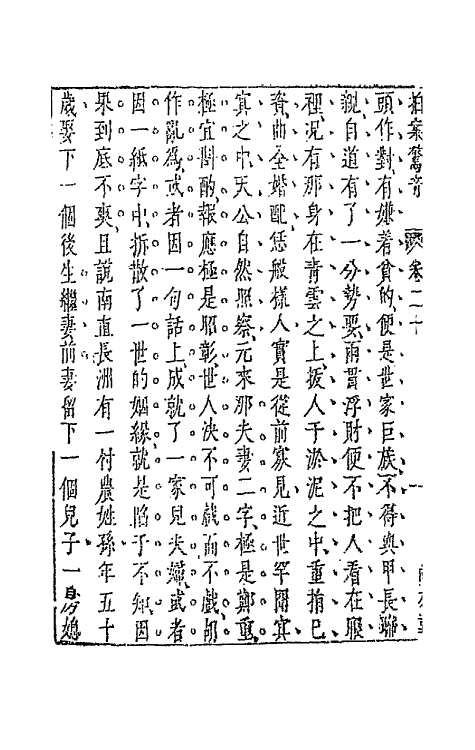 拍案驚奇 卷二十 一
頭作對有嫌着貧的便是世家巨族不得與甲長聯
親自道有了一分勢要兩貫浮財便不把人看在眼
裡况有那身在青雲之上拔人于淤泥之中重捐己
資曲全婚配恁般樣人實是從前寡見近世罕聞冥
冥之中天公自然照察元來那夫妻二字極是鄭重
極宜斟酌報應極是昭彰世人决不可戲而不戲胡
作亂爲或者因一句話上成就了一家兒夫婦或者
因一紙字中拆散了一世的姻緣就是陷于不知因
果到底不爽且說南直長洲有一村農姓孫年五十
歲娶下一個後生繼妻前妻留下一個兒子一房媳